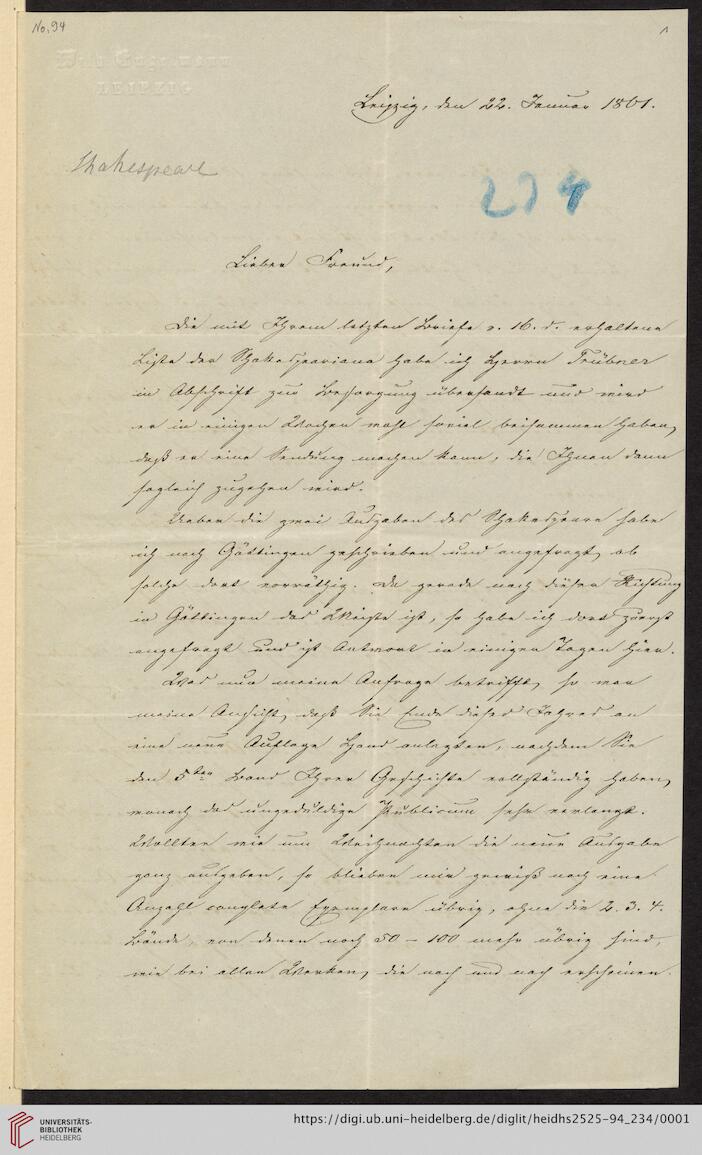 No. 94
1
Wilh. Engelmann
LEIPZIG
Leipzig, den 22. Januar 1861.
Shakespeare
234
Lieber Freund,
Die mit Ihrem letzten Briefe v. 16. d. erhaltene
Liste der Shakespeariana habe ich Herrn Trübner
in Abschrift zur Besorgung übersandt und wird
er in einigen Wochen wohl soviel beisammen haben,
daß er eine Sendung machen kann, die Ihnen dann
sogleich zugehen wird.
Ueber die zwei Ausgaben des Shakespeare habe
ich nach Göttingen geschrieben und angefragt, ob
solche dort vorräthig. Da gerade nach dieser Richtung
in Göttingen das Meiste ist, so habe ich dort zuerst
angefragt und ist Antwort in einigen Tagen hier.
Was nun meine Anfrage betrifft, so war
meine Ansicht, daß Sie Ende dieses Jahres an
eine neue Auflage Hand anlegten, nachdem Sie
den 5ten Band Ihrer Geschichte vollständig haben,
wonach das ungeduldige Publicum sehr verlangt.
Wollten wir um Weihnachten die neue Ausgabe
ganz aufgeben, so blieben mir gewiß noch eine
Anzahl complete Exemplare übrig, ohne die 2. 3. 4.
Bände, von denen noch 50 – 100 mehr übrig sind,
wie bei allen Werken, die nach und nach erscheinen.
UNIVERSITÄTS-
BIBLIOTHEK
HEIDELBERG
https://digi.ub.uni-heidelberg.de/diglit/heidhs2525-94_234/0001